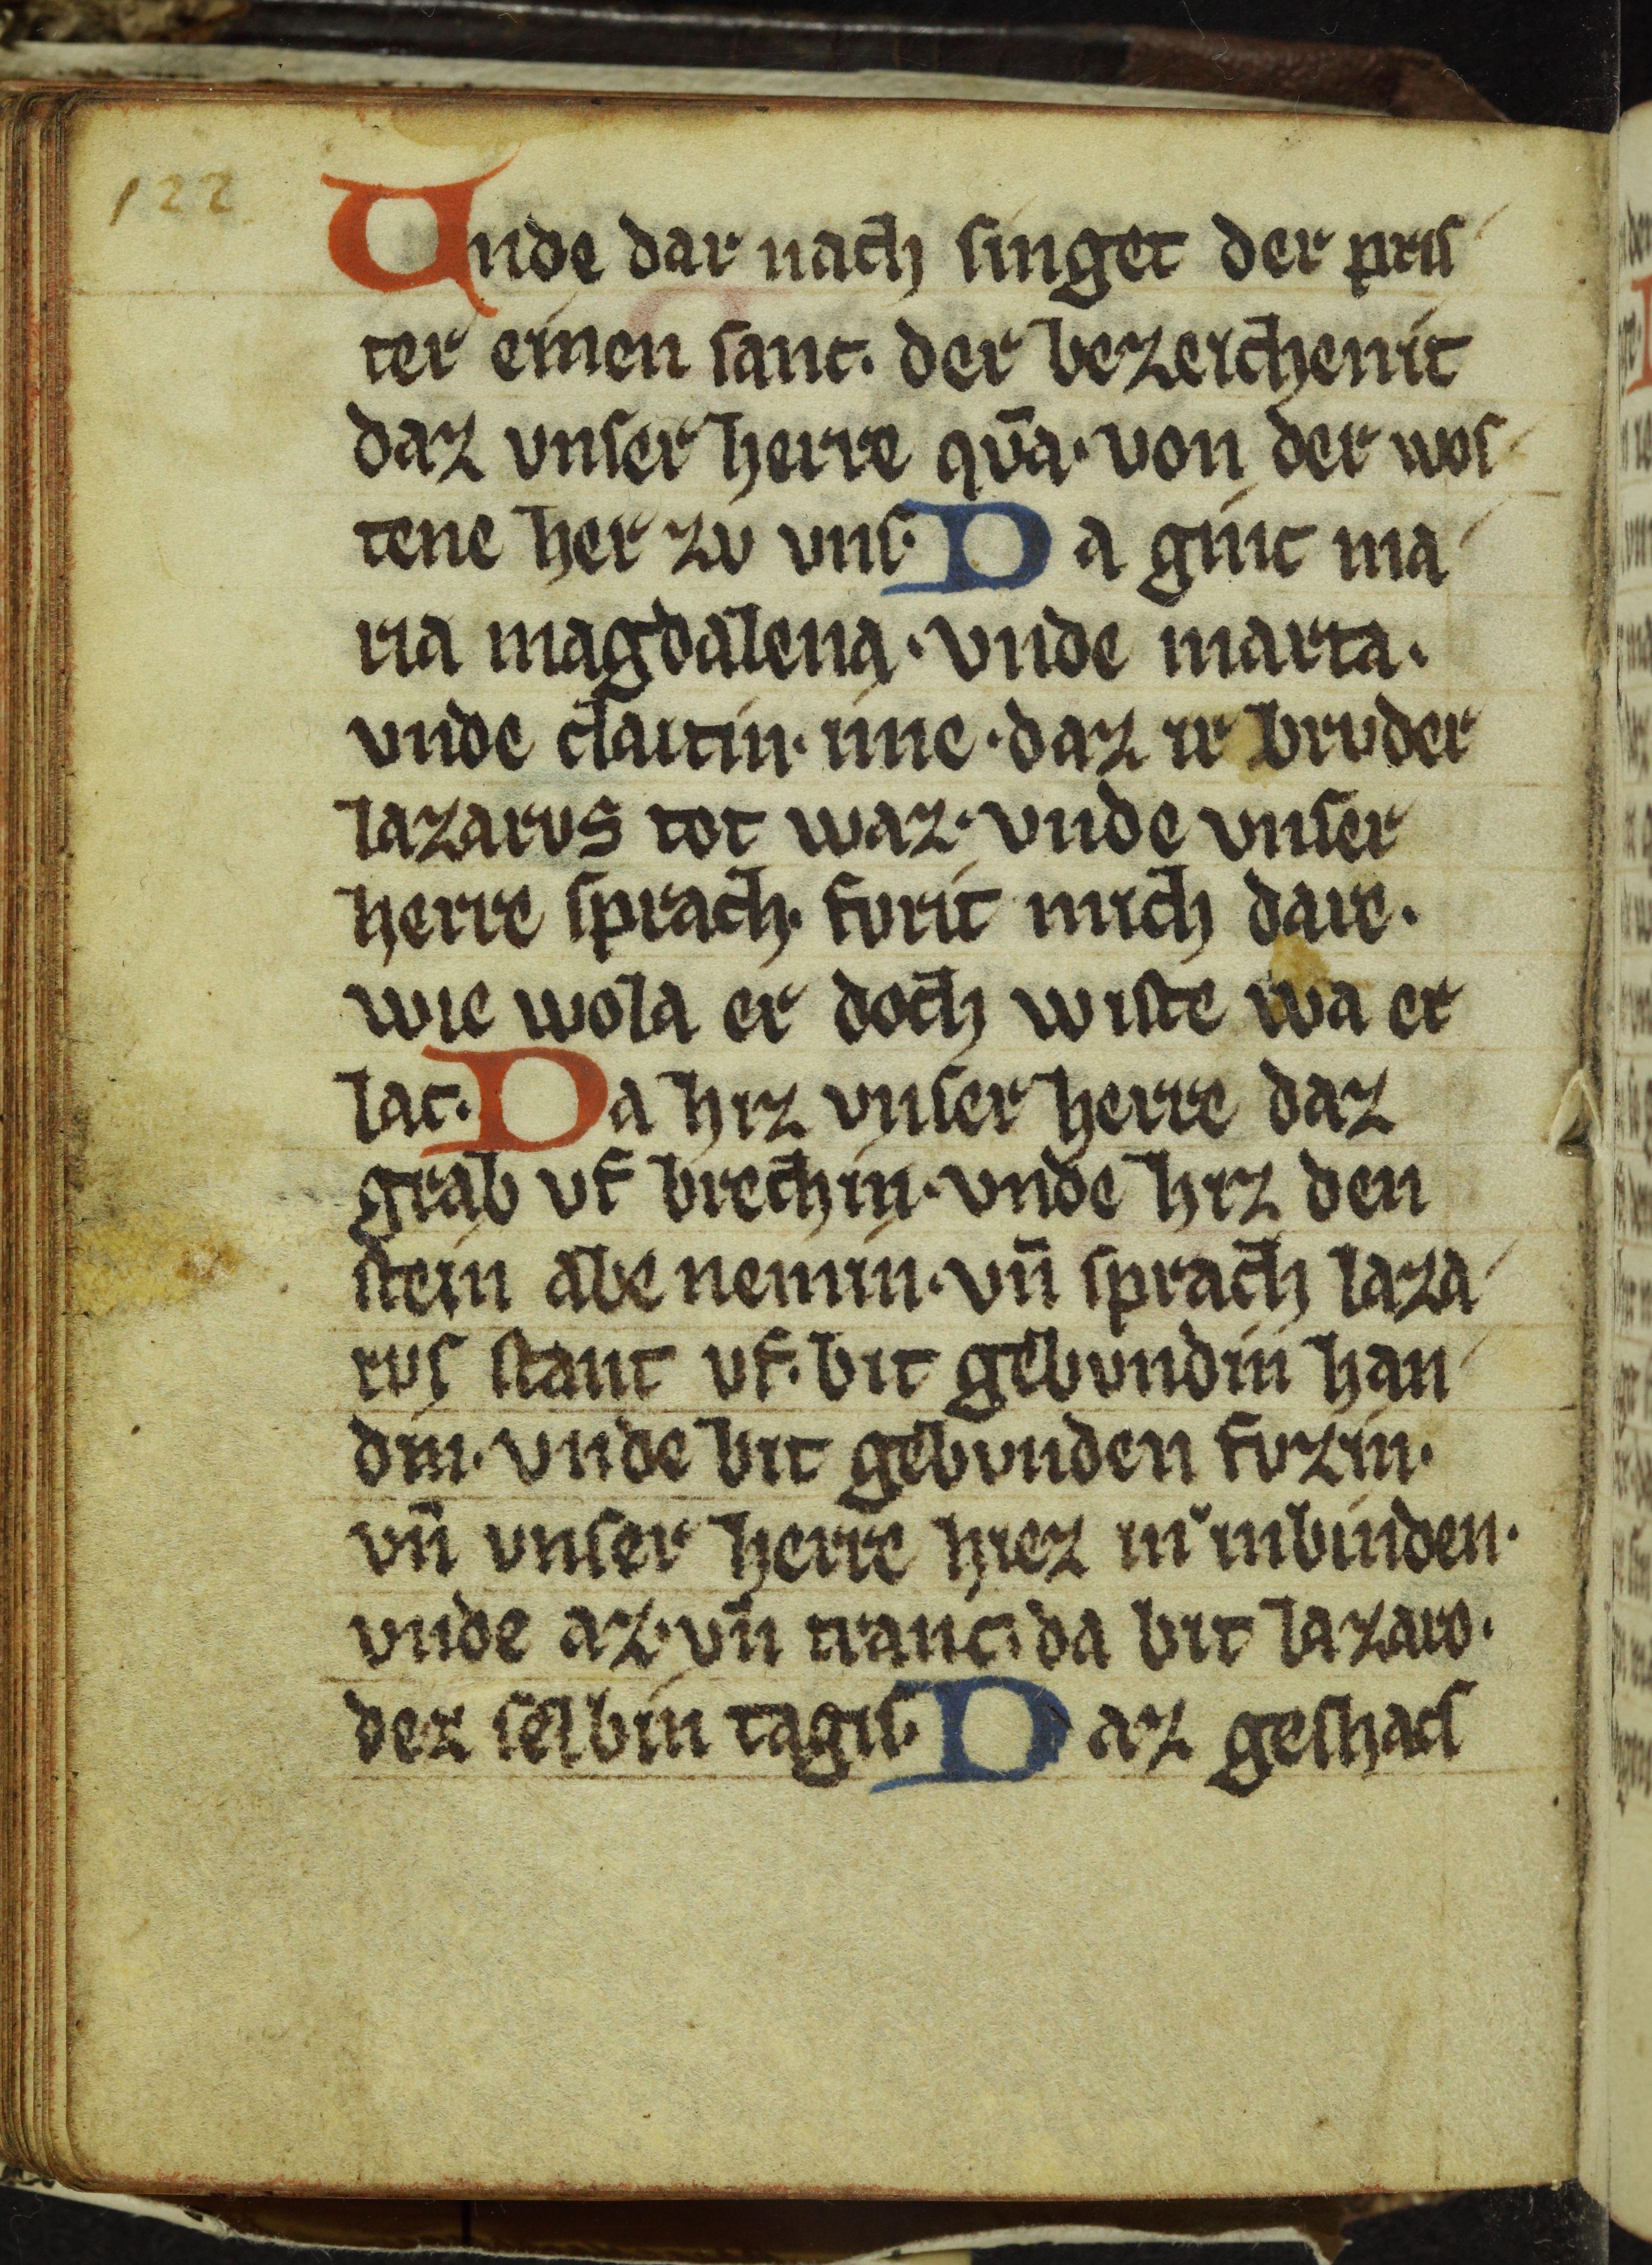 122
Unde dar nach singet der pris
ter einen sanc. der bezeichenit
daz vnser herre qūa. von der wos
tene her zv vns. Da ginc ma
ria magdalena. vnde marta.
vnde clatin. ime. daz ir brvder
lazarvs tot waz. vnde vnser
herre sprach. fvrit mich dare.
wie wola er doch wiste wa er
lac. Da hiz vnser herre daz
grab vf brechin. vnde hiz den
stein abe nemin. vn̄ sprach laza
rvs stant vf. bit gebvndin han
din. vnde bit gebvnden fvzin.
vn̄ vnser herre hiez in inbinden.
vnde az. vn̄ tranc. da bit lazaro.
dez selbin tagis. Daz geshach